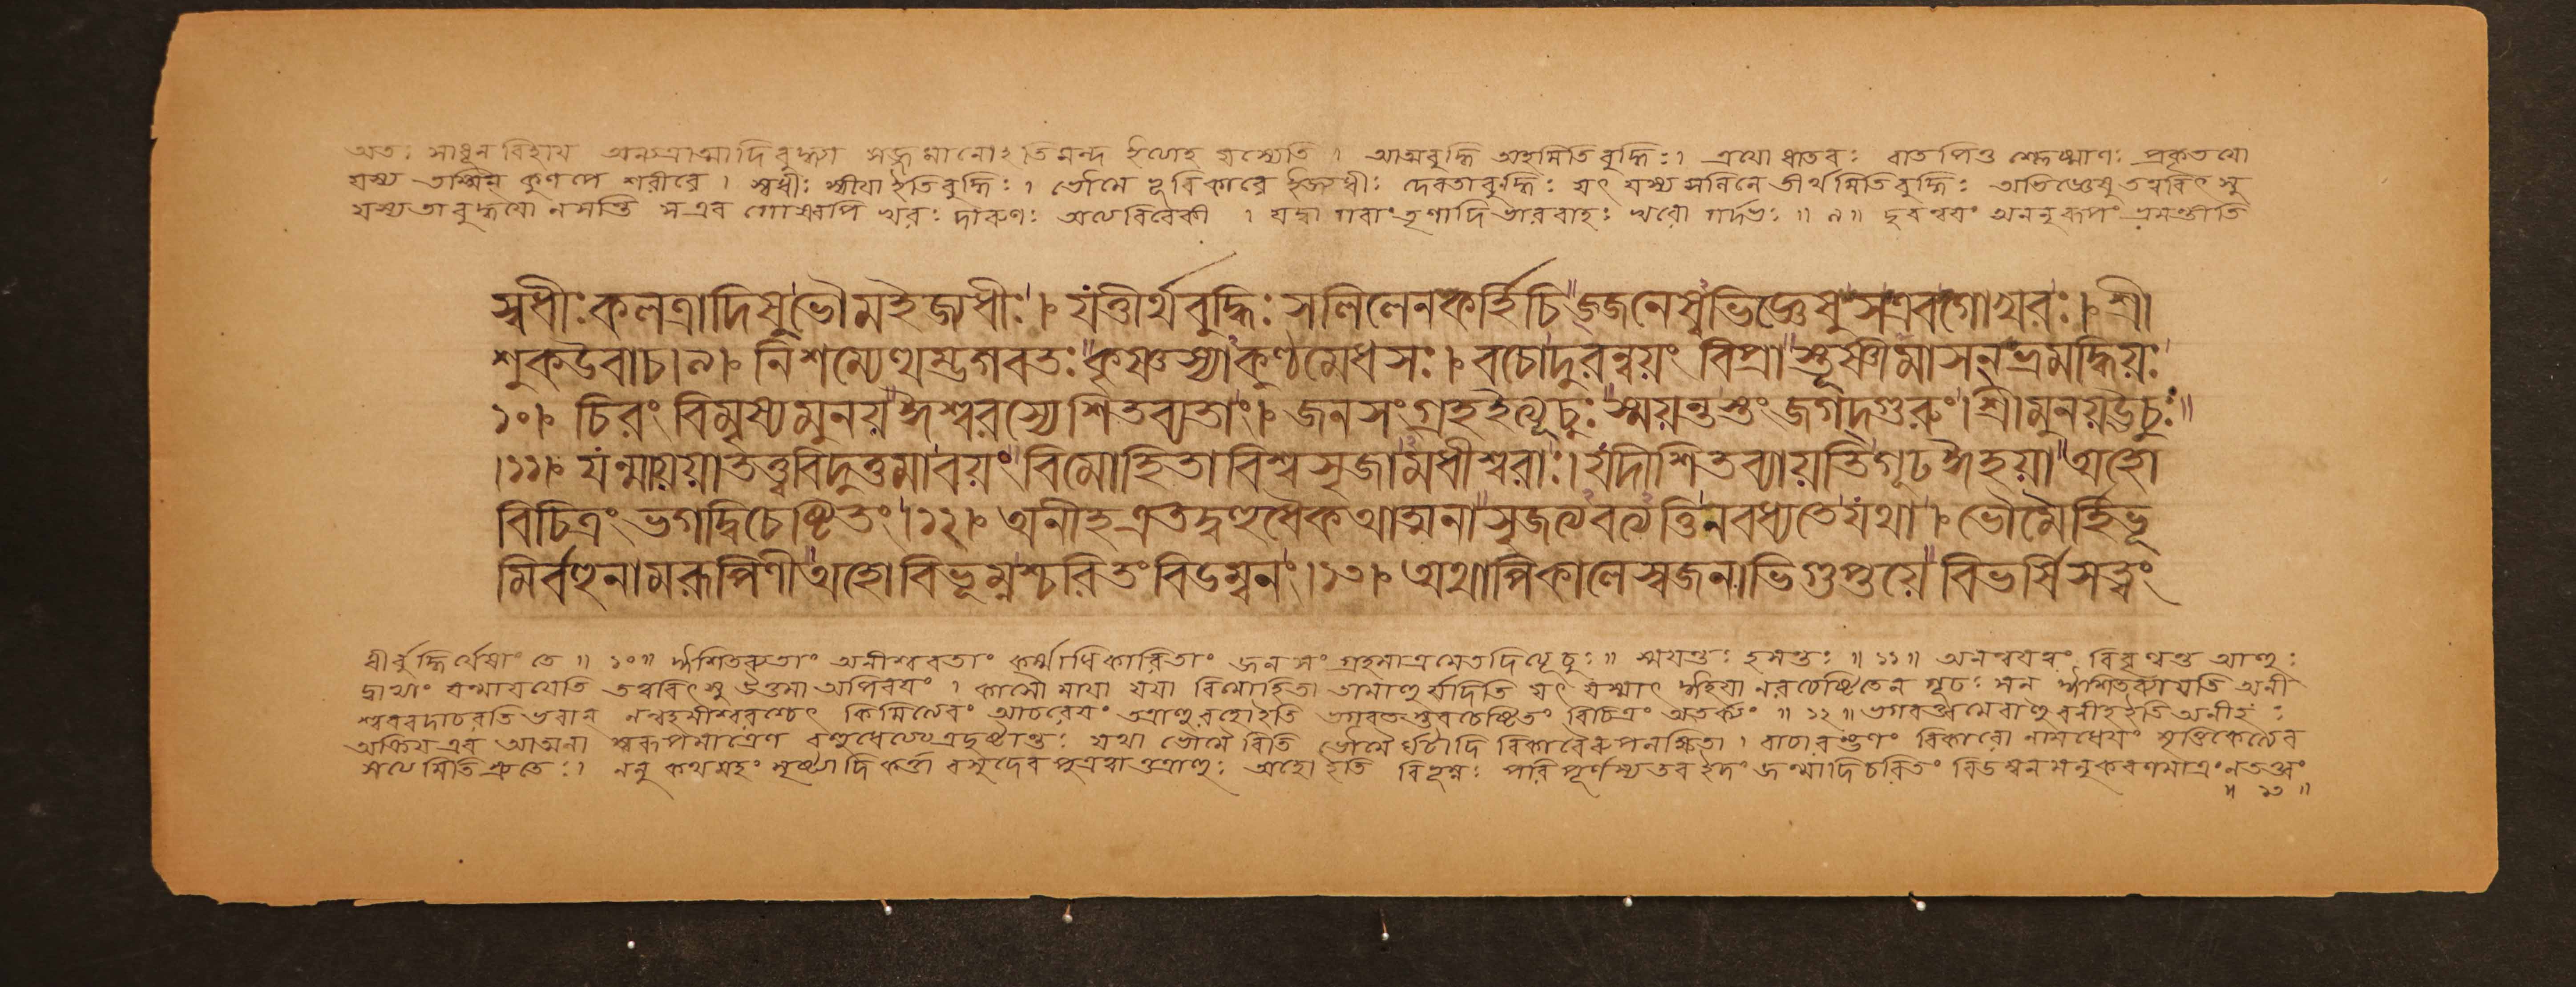 অতঃ সাধূন বিহায অন্যত্রাত্মাদিবুদ্ধ্যা সজ্জমানোঽতিমন্দ ইত্যাহ যস্যেতি । আত্মবুদ্ধি অহমিতিবুদ্ধিঃ। ত্রযো ধাতবঃ বাতপিত্ত শ্লেষ্মাণঃ প্রকৃতযো
যস্য তস্মিন কুণপে শরীরে । স্বধীঃ স্বীযা ইতিবুদ্ধিঃ । ভৌমে ভূবিকারে ইজ্যধীঃ দেবতাবুদ্ধিঃ যৎ যস্য সলিলে তীর্থমিতিবুদ্ধিঃ অভিজ্ঞেষু তত্ত্ববিৎসু
যস্য তা বুদ্ধযো ন সন্তি স এব গোষ্বপি খরঃ দারুণঃ অত্যবিবেকী । যদ্বা গবাং তৃণাদিভারবাহঃ খরো গর্দভঃ ॥ ৯॥ দুরন্বযং অননুরূপং ভ্রমন্তীতি
স্বধীঃকলত্রাদিষুভৌমইজ্যধীঃ। যত্তীর্থবুদ্ধিঃসলিলেনকর্হিচিজ্জনেষ্বভিজ্ঞেষুসএবগোখরঃ। শ্রী
শুকউবাচ।৯। নিশম্যেত্থম্ভগবতঃকৃষ্ণস্যাকুণ্ঠমেধসঃ। বচোদুরন্বয়ং বিপ্রাস্তূষ্ণীমাসনভ্রমদ্ধিয়ঃ
১০। চিরং বিমৃষ্যমুনয়ঈশ্বরস্যেশিতব্যতাং। জনসংগ্রহইত্যূচুঃস্ময়ন্তস্তংজগদ্গুরুং। শ্রীমুনয়উচুঃ
।১১। যন্মায়য়াতত্ত্ববিদুত্তমাবয়ংবিমোহিতাবিশ্বসৃজামধীশ্বরাঃ। যদীশিতব্যায়তিগূঢঈহয়াঅহো
বিচিত্রংভগবদ্বিচেষ্টিতং।১২। অনীহএতদ্বহুধৈকআত্মনাসৃজত্যবত্যত্তিনবধ্যতেযথা। ভৌমৈর্হিভূ
মির্বহুনামরূপিণীঅহোবিভূম্নশ্চরিতংবিডম্বনং।১৩। অথাপিকালেস্বজনাভিগুপ্তয়েবিভর্ষিসত্ত্বং
ধীর্বুদ্ধির্যেষাং তে ॥ ১০॥ ঈশিতব্যতাং অনীশ্বরতাং কর্ম্মাধিকারিতাং জনসংগ্রহমাত্রমেতদিত্যূচুঃ॥ স্ময়ন্তঃ হসন্তঃ ॥ ১১॥ অনন্বযত্বং বিবৃণ্বন্ত আহুঃ
দ্বাভ্যাং যন্মাযযেতি তত্ত্ববিৎসু উত্তমা অপিবযং । কাসৌ মাযা যযা বিমোহিতা তামাহুর্যদিতি যৎ যস্মাৎ ঈহযা নরচেষ্টিতেন গূঢঃ সন ঈশিতব্যাযতি অনী
শ্বরবদাচরতি ভবান নন্বহমীশ্বরশ্চেৎ কিমিত্যেবং আচরেযং তত্রাহুরহোইতি ভগবতস্তবচেষ্টিতং বিচিত্রং অতর্ক্যং ॥ ১২॥
অক্রিয এব আত্মনা স্বরূপমাত্রেণ বহুধেত্যত্রদৃষ্টান্তঃ যথা ভৌমৈরিতি ভৌমৈর্ঘটাদি বিকারৈরুপলক্ষিতা । বাচারম্ভণং বিকারো নামধেযং মৃত্তিকেত্যেব
সত্যমিতিশ্রুতেঃ। ননু কথমহং সৃষ্ট্যাদিকর্ত্তা বসুদেবপুত্রত্বাত্তত্রাহুঃ অহো ইতি বিভূম্নঃ পরিপূর্ণস্য তব ইদং জন্মাদিচরিতং বিডম্বনমনুকরণমাত্রং নতত্ত্বং
॥ ১৩ ॥